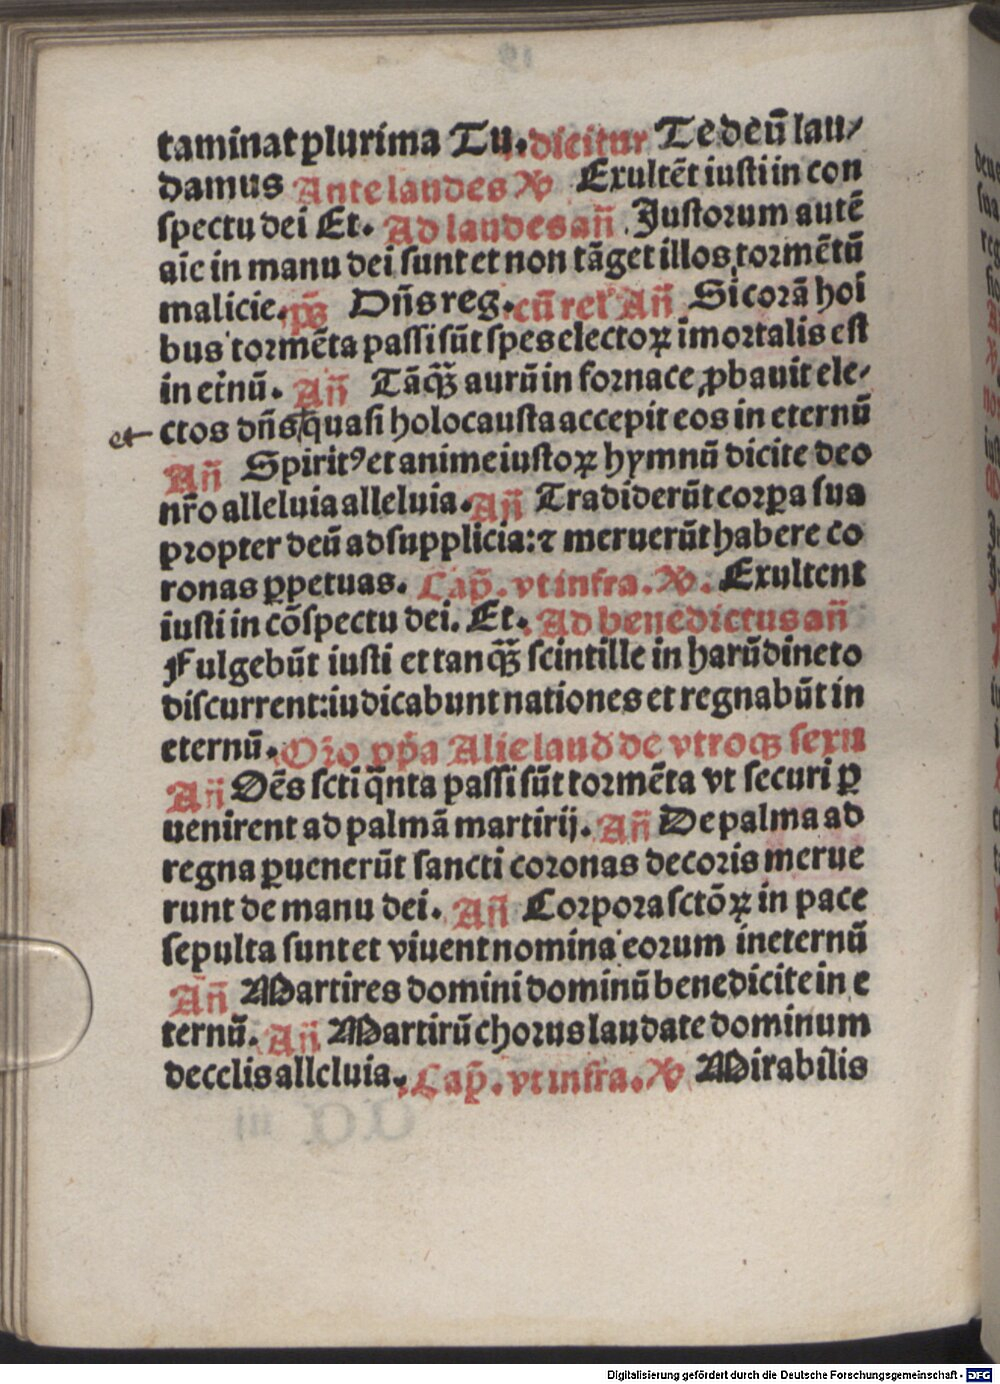 taminat ꝑlurima Tu. dicitur Te deū lau⸗
damus Ante laudes ℣ Exultēt iusti in con
spectu dei Et. Ad laudes añ Justorum autē
aīe in manu dei sunt et non tāget illos tormētū
malicie. ps̄ Dñs reg. cū rel̓ Añ Si corā hoī
bus tormēta passi sūt spes electoꝝ īmortalis est
in et̄nū. Añ Tāqꝫ aurū in fornace ꝓbauit ele⸗
et ctos dñs quasi holocausta accepit eos in eternū
Añ Spiritꝰ et anime iustoꝝ hymnū dicite deo
nr̄o alleluia alleluia. Añ Tradiderūt corꝑa sua
propter deū ad supplicia: ⁊ meruerūt habere co
ronas ꝑpetuas. Cap̄. vt infra. ℣. Exultent
iusti in cōspectu dei. Et. Ad benedictus añ
Fulgebūt iusti et tanqꝫ scintille in harūdineto
discurrent: iudicabunt nationes et regnabūt in
eternū. Oro pp̄a Alie laud de vtroqꝫ sexu
Añ Oēs scti q̄nta passi sūt tormēta vt securi ꝑ
uenirent ad palmā martirij. Añ De palma ad
regna ꝑuenerūt sancti coronas decoris merue
runt de manu dei. Añ Corpora sctōꝝ in pace
sepulta sunt et viuent nomina eorum in eternū
Añ Martires domini dominū benedicite in e
ternū. Añ Martirū chorus laudate dominum
de celis alleluia. Cap̄. vt infra. ℣ Mirabilis
Digitalisierung gefördert durch die Deutsche Forschungsgemeinschaft - DFG